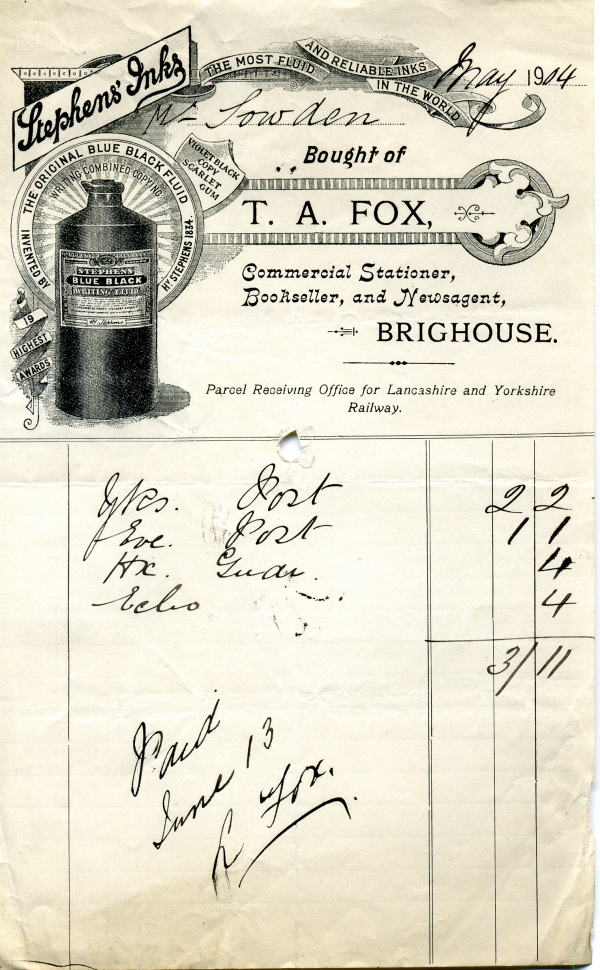 Stephens' Inks
THE MOST FLUID
AND RELIABLE INKS
IN THE WORLD
May 1904
Mr Sowden
Bought of
T. A. FOX,
Commercial Stationer,
Bookseller, and Newsagent,
BRIGHOUSE.
Parcel Receiving Office for Lancashire and Yorkshire
Railway.
THE ORIGINAL BLUE BLACK FLUID
WRITING COMBINED COPYING
INVENTED BY
HY STEPHENS 1834.
VIOLET BLACK
COPY
SCARLET
GUM
STEPHENS'
BLUE BLACK
WRITING FLUID
19
HIGHEST
AWARDS
Yks. Post 2 2
Eve. Post 1 1
Hx. Gudn. 4
Echo 4
3/11
Paid
June 13
L Fox.